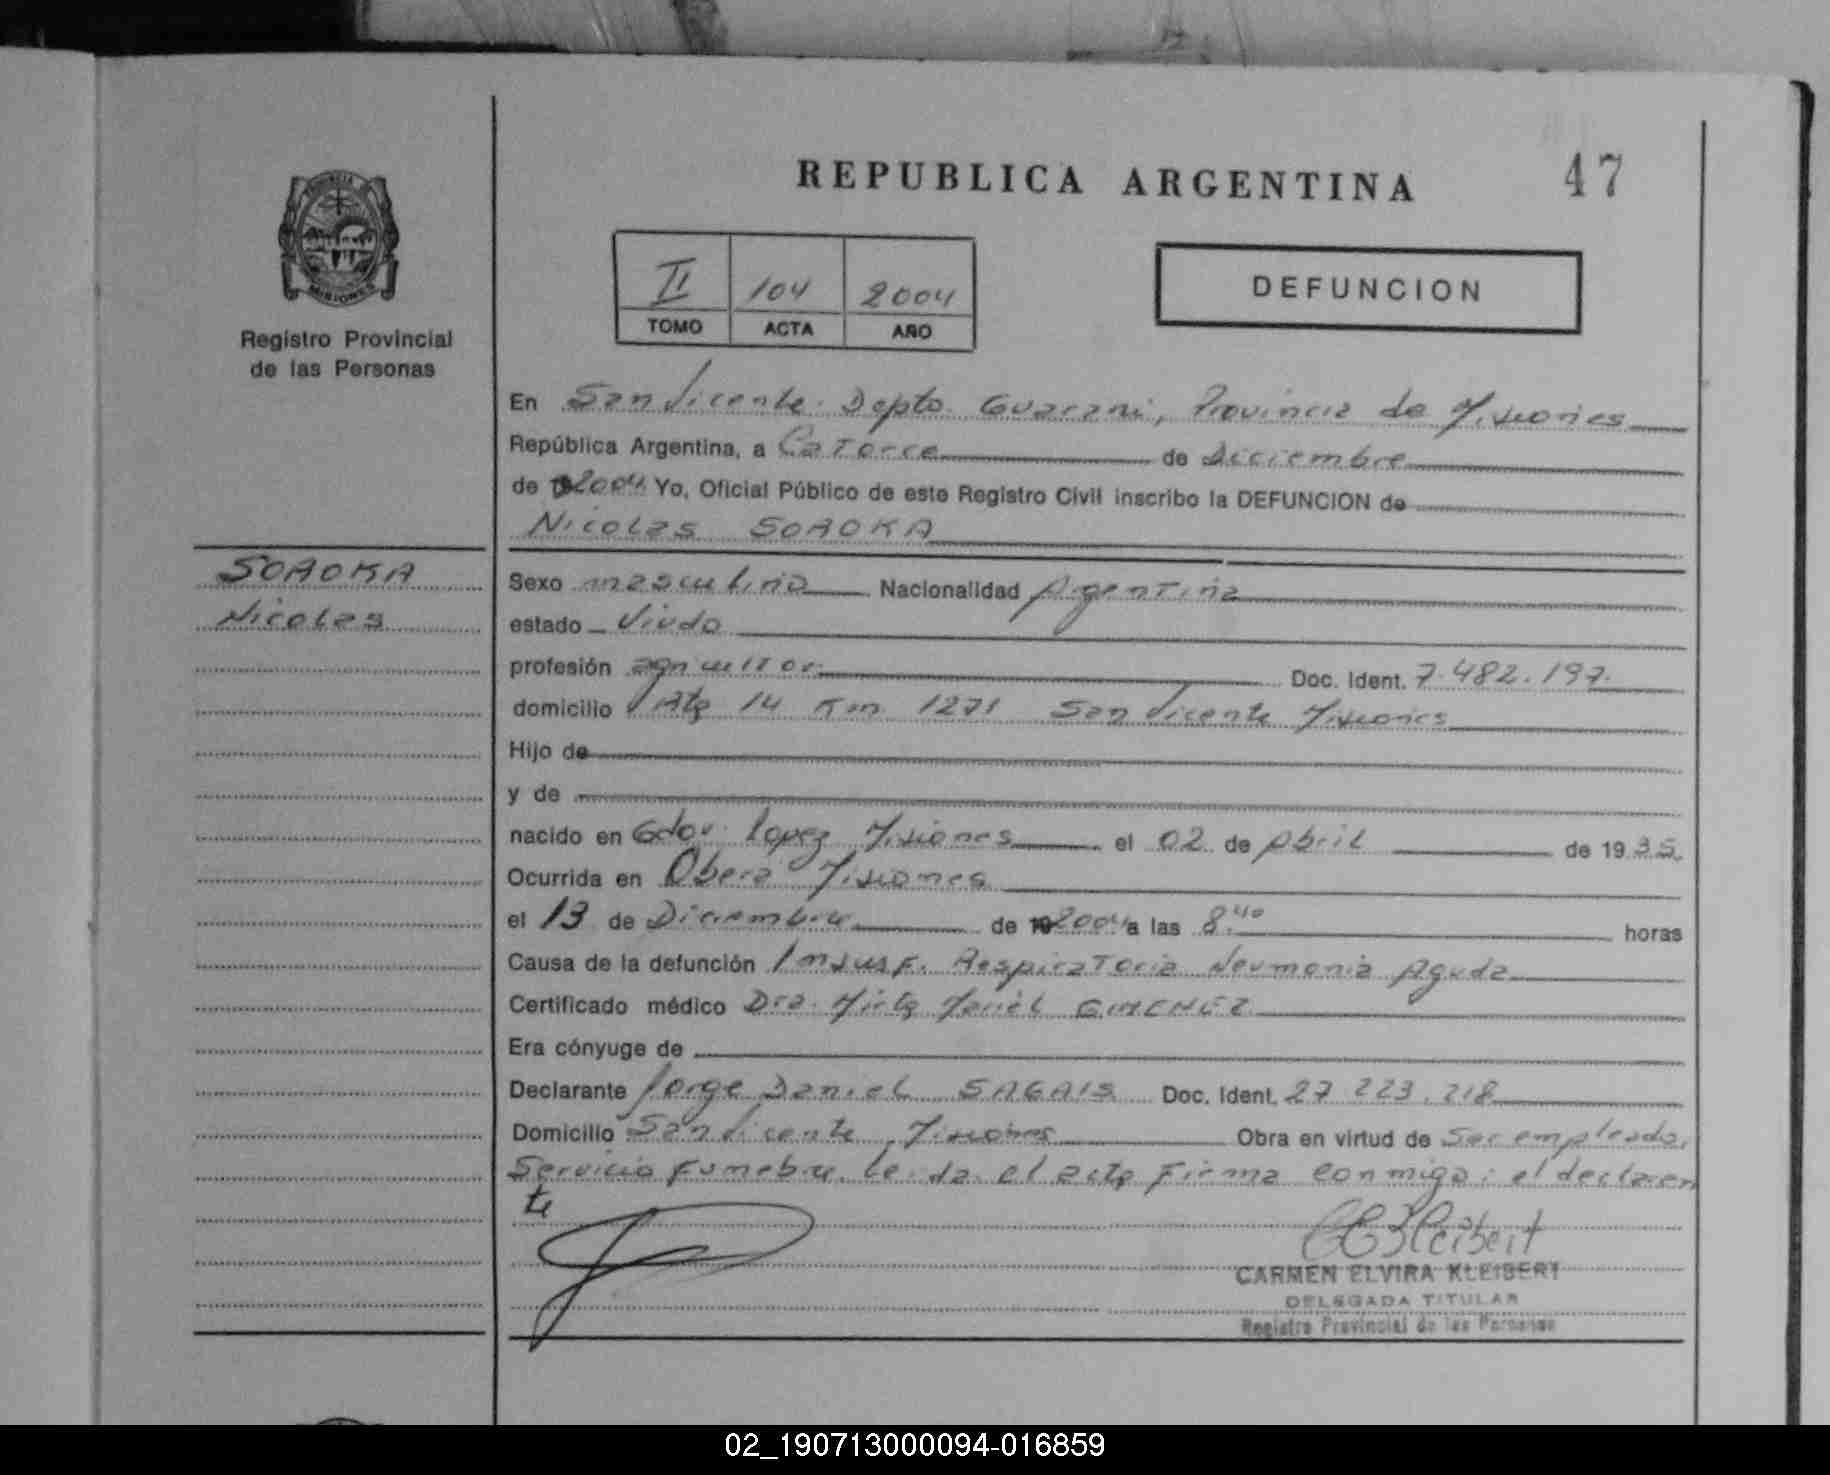 REPUBLICA ARGENTINA
47
PROVINCIA DE
MISIONES
Registro Provincial
de las Personas
II 104 2004
TOMO ACTA AÑO
DEFUNCION
En San Vicente Depto Guarani, Provincia de Misiones
República Argentina, a Catorce de Diciembre
de 2004 Yo, Oficial Público de este Registro Civil inscribo la DEFUNCION de
Nicolas SOROKA
SOROKA
Nicolas
Sexo masculino Nacionalidad Argentina
estado Viudo
profesión agricultor Doc. Ident. 7.482.197.
domicilio Rta 14 Km 1271 San Vicente Misiones
Hijo de
y de
nacido en Gdor. Lopez Misiones el 02 de Abril de 1935.
Ocurrida en Obera Misiones
el 13 de Diciembre de 2004 a las 8.40 horas
Causa de la defunción Insuf. Respiratoria Neumonia Aguda
Certificado médico Dra. Mirta Mariel GIMENEZ
Era cónyuge de
Declarante Jorge Daniel SAGAIS Doc. Ident. 27 223.218
Domicilio San Vicente, Misiones Obra en virtud de Ser empleado,
Servicio Funebre. Leida el acta Firma conmigo: el declaran
te
CEKleibert
CARMEN ELVIRA KLEIBERT
DELEGADA TITULAR
Registro Provincial de las Personas
02_190713000094-016859